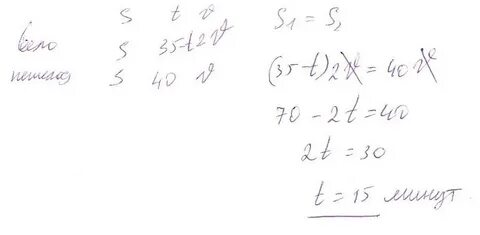 S t v
вело S 35-t 2v
пешеход S 40 v
S1 = S2
(35-t)2v = 40v
70 - 2t = 40
2t = 30
t = 15 минут